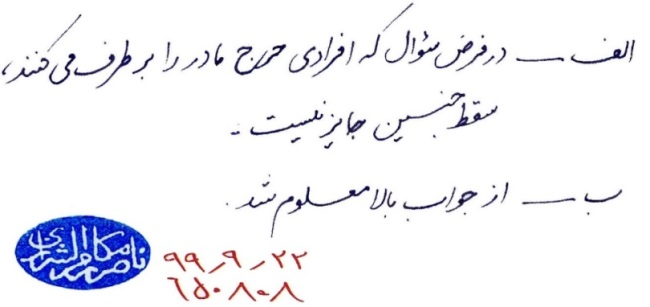 الف — در فرض سؤال که افرادی حرج مادر را بر طرف می کنند،
سقط جنین جایز نیست.
ب — از جواب بالا معلوم شد.
ناصر مکارم الشیرازی
۹۹٫۹٫۲۲
۶۵۰۸۰۸